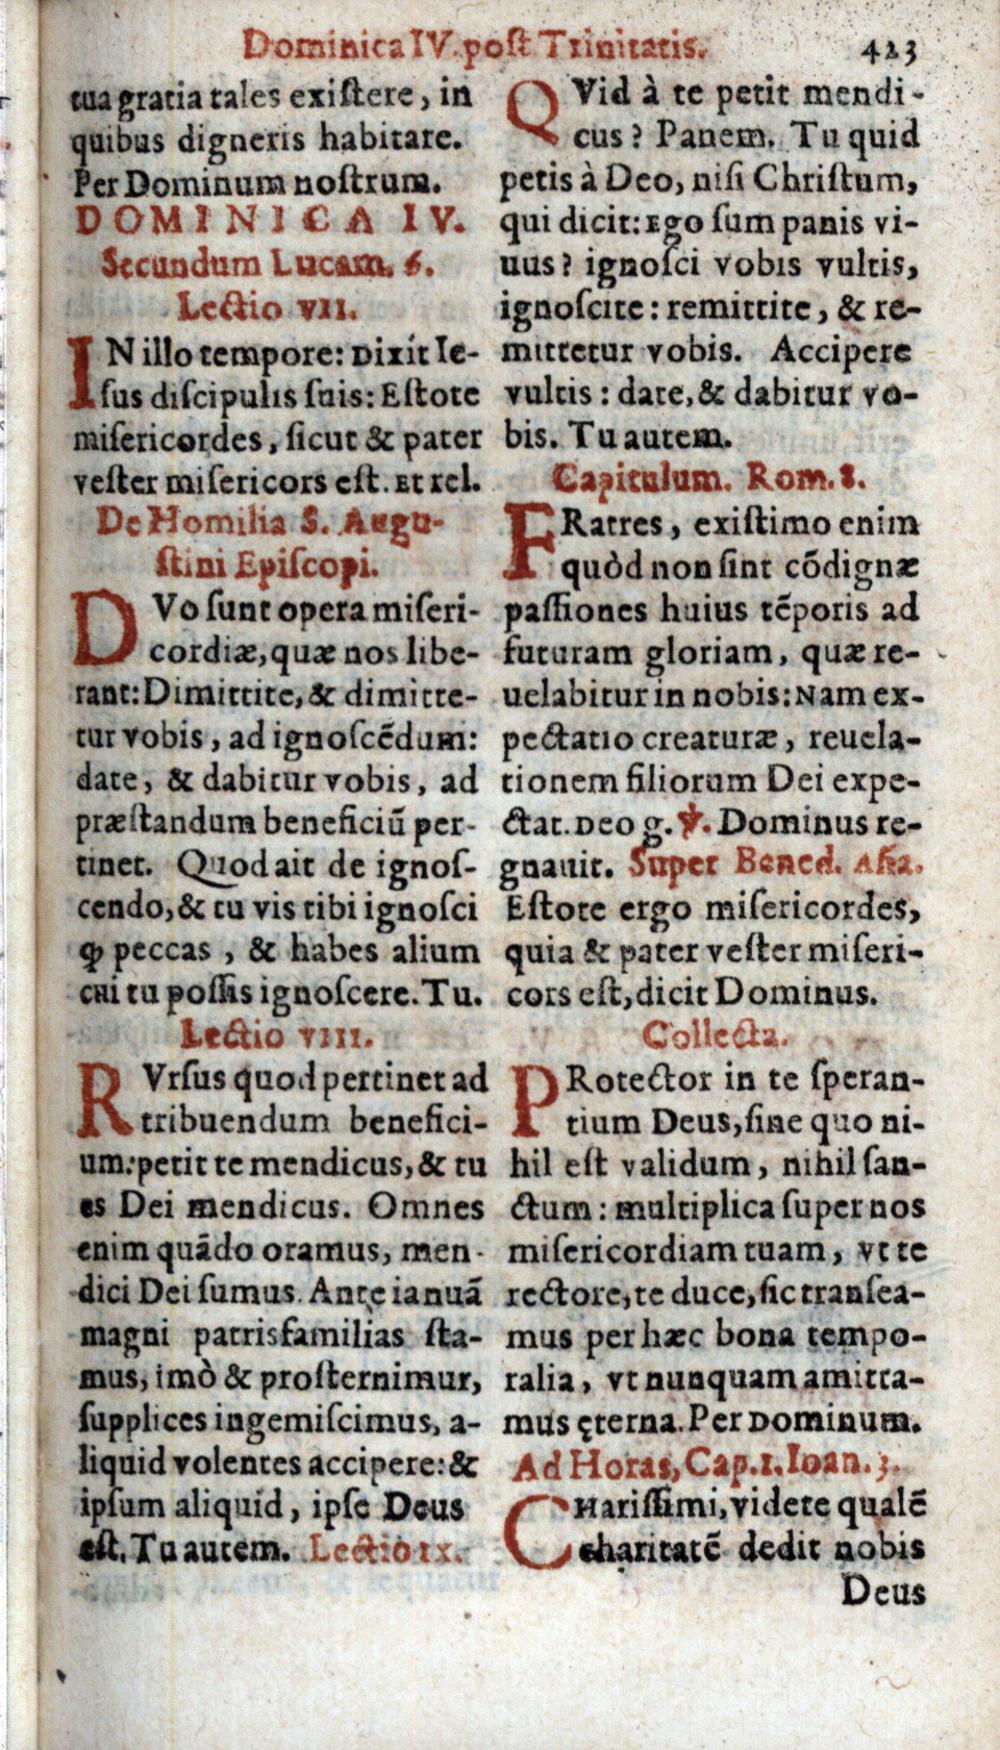 Dominica IV. post Trinitatis. 423
tua gratia tales exiſtere, in
quibus digneris habitare.
Per Dominum noſtrum.
DOMINICA IV.
Secundum Lucam. 6.
Lectio VII.
IN illo tempore: Dixit Ie-
ſus diſcipulis ſuis: Eſtote
miſericordes, ſicut & pater
veſter miſericors eſt. Et rel.
De Homilia S. Augu-
ſtini Epiſcopi.
DVo ſunt opera miſeri-
cordiæ, quæ nos libe-
rant: Dimittite, & dimitte-
tur vobis, ad ignoſcẽdum:
date, & dabitur vobis, ad
præſtandum beneficiũ per-
tinet. Quod ait de ignoſ-
cendo, & tu vis tibi ignoſci
ꝙ peccas, & habes alium
cui tu poſſis ignoſcere. Tu.
Lectio VIII.
RVrſus quod pertinet ad
tribuendum benefici-
um: petit te mendicus, & tu
es Dei mendicus. Omnes
enim quãdo oramus, men-
dici Dei ſumus. Ante ianuã
magni patrisfamilias ſta-
mus, imò & proſternimur,
ſupplices ingemiſcimus, a-
liquid volentes accipere: &
ipſum aliquid, ipſe Deus
eſt. Tu autem. Lectio IX.
QVid à te petit mendi-
cus? Panem. Tu quid
petis à Deo, niſi Chriſtum,
qui dicit: Ego ſum panis vi-
uus? ignoſci vobis vultis,
ignoſcite: remittite, & re-
mittetur vobis. Accipere
vultis: date, & dabitur vo-
bis. Tu autem.
Capitulum. Rom. 8.
FRatres, exiſtimo enim
quòd non ſint cõdignæ
paſſiones huius tẽporis ad
futuram gloriam, quæ re-
uelabitur in nobis: Nam ex-
pectatio creaturæ, reuela-
tionem filiorum Dei expe-
ctat. Deo g. ℣. Dominus re-
gnauit. Super Bened. Aña.
Eſtote ergo miſericordes,
quia & pater veſter miſeri-
cors eſt, dicit Dominus.
Collecta.
PRotector in te ſperan-
tium Deus, ſine quo ni-
hil eſt validum, nihil ſan-
ctum: multiplica ſuper nos
miſericordiam tuam, vt te
rectore, te duce, ſic tranſea-
mus per hæc bona tempo-
ralia, vt nunquam amitta-
mus ęterna. Per Dominum.
Ad Horas, Cap. 1. Ioan. 3.
CHariſſimi, videte qualẽ
charitatẽ dedit nobis
Deus